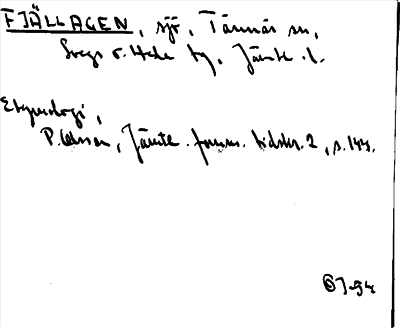 FJÄLLAGEN, sjö, Tännäs sn,
Svegs o. Hede tg, Jämtl. l.
Etymologi,
P. Olsson, Jämtl. fornm. tidskr. 2, s. 144.